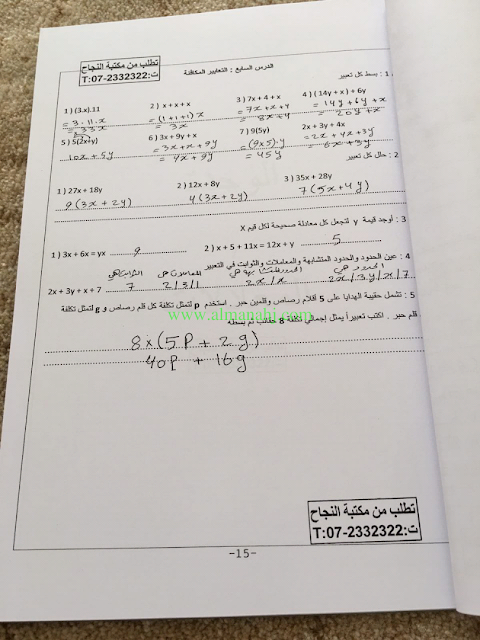 تطلب من مكتبة النجاح
ت:07-2332322:T
الدرس السابع : التعابير المتكافئة
1 : بسط كل تعبير
1 ) (3.x).11 2 ) x + x + x 3 ) 7x + 4 + x 4 ) (14y + x) + 6y
= 3 . 11 . x = (1+1+1) x = 7x + x + 4 = 14y + 6y + x
= 33 x = 3x = 8x + 4 = 20y + x
5 ) 5(2x+y) 6 ) 3x + 9y + x 7 ) 9(5y) 2x + 3y + 4x
10x + 5y = 3x + x + 9y = (9x5) . y = 2x + 4x + 3y
= 4x + 9y = 45y = 6x + 3y
2 : حلل كل تعبير
1 ) 27x + 18y 2 ) 12x + 8y 3 ) 35x + 28y
9 (3x + 2y) 4 (3x + 2y) 7 (5x + 4y)
3 : أوجد قيمة y لتجعل كل معادلة صحيحة لكل قيم X
1 ) 3x + 6x = yx 9 2 ) x + 5 + 11x = 12x + y 5
4 : عين الحدود والحدود المتشابهة والمعاملات والثوابت في التعبير
الحدود هي
2x + 3y + x + 7 7 2/3/1 2x / x 2x / 3y / x / 7
5 : تشمل حقيبة الهدايا على 5 أقلام رصاص وقلمين حبر . استخدم p لتمثل تكلفة كل قلم رصاص و g لتمثل تكلفة
www.almanahj.com
قلم حبر . اكتب تعبيراً يمثل إجمالي تكلفة 8 حقائب ثم بسطه
8 x (5p + 2g)
40p + 16g
تطلب من مكتبة النجاح
ت:07-2332322:T
-15-